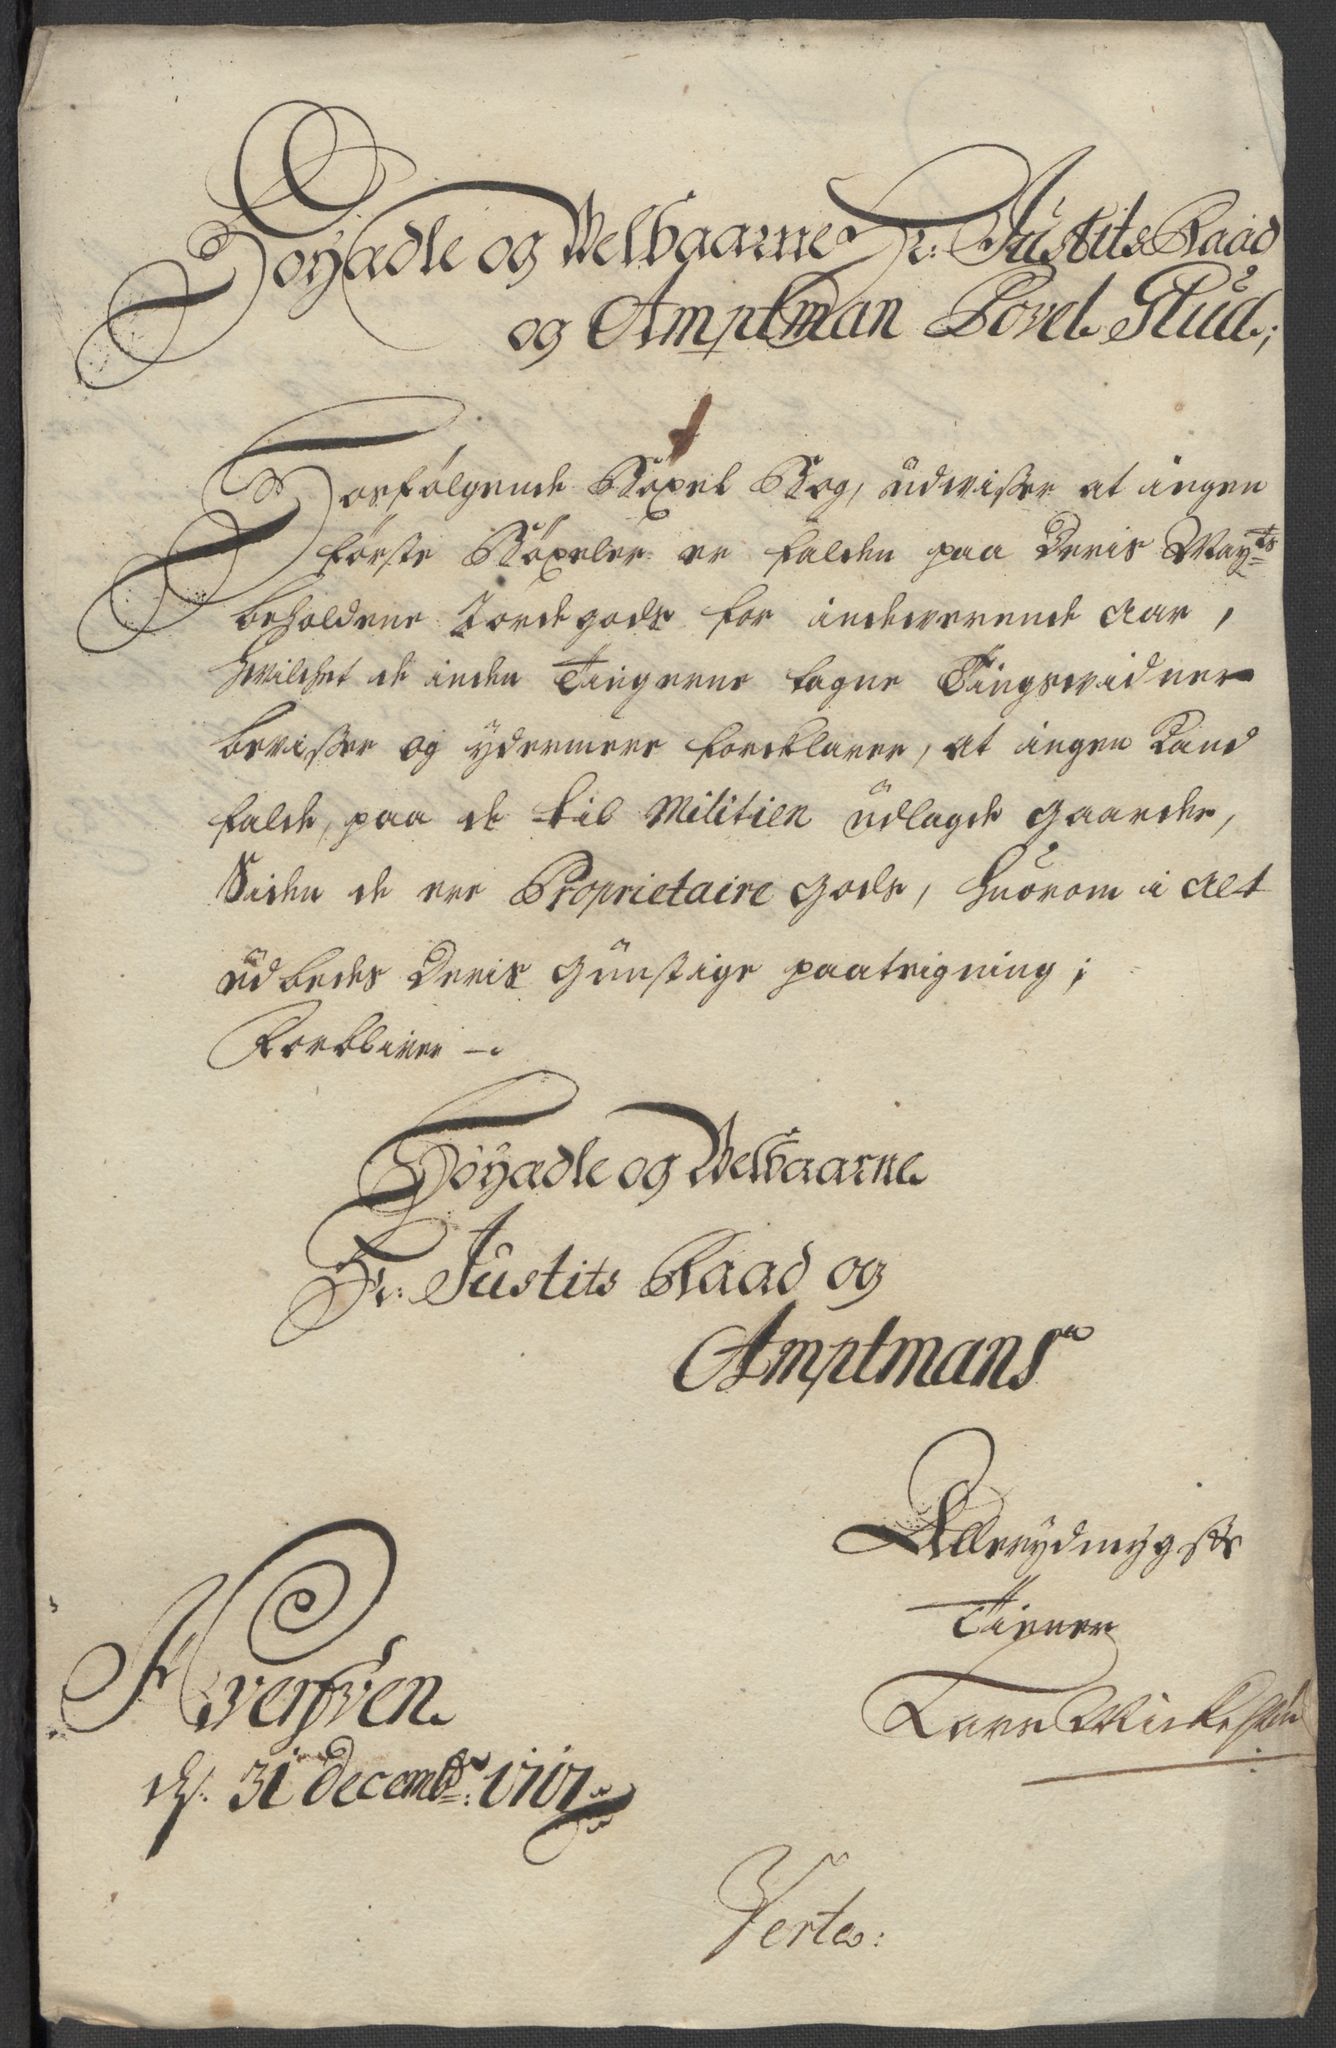 Høyædle og Velbaarne Hr: Justits Raad
og Amptman Povel Glud;
Hosfølgende Bøxel Bog, udviser at ingen
første Bøxeler er falden paa Deris Mayts
beholdene Jordegods for indeverende Aar,
hvilchet de inden Tingerne tagne Tingsvidner
beviser og ydermere forchlarer, at ingen Land
falde, paa de til Militien udlagde gaarder,
Siden de ere Proprietaire gods, huorom i alt
udbedes Deris Gunstige paateigning;
Forbliver
Høyædle og Velbaarne
Hr: Justits Raad og
Amptmans
Allerydmygste
Tiener
Qversven
d: 31 decembr: 1717
Verte: